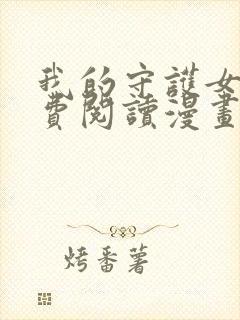 我的守護女
費閱讀漫畫
烤番薯